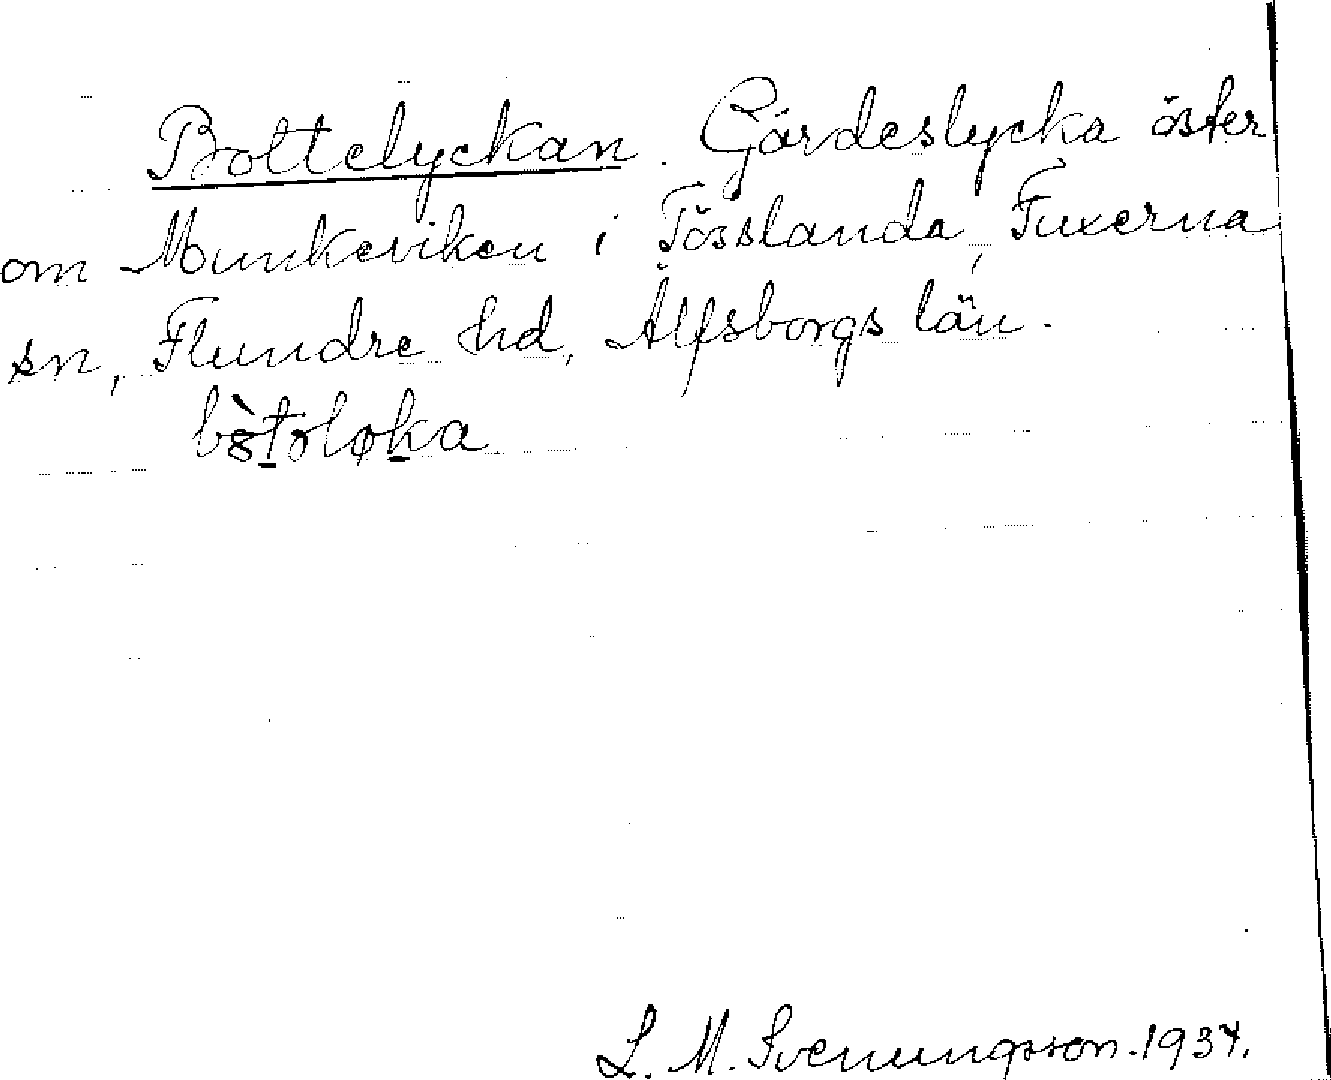 Bottelyckan. Gärdeslycka öster
om Munkeviken i Tösslanda, Fuxerna
sn, Flundre hd, Älfsborgs län.
L. M. Svenungsson. 1937.